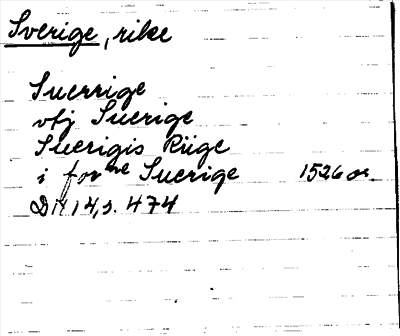 Sverige, rike
Suerrige
vtj Suerige
Suerigis Riige
i forne Suerige 1526 or.
DN 14, s. 474